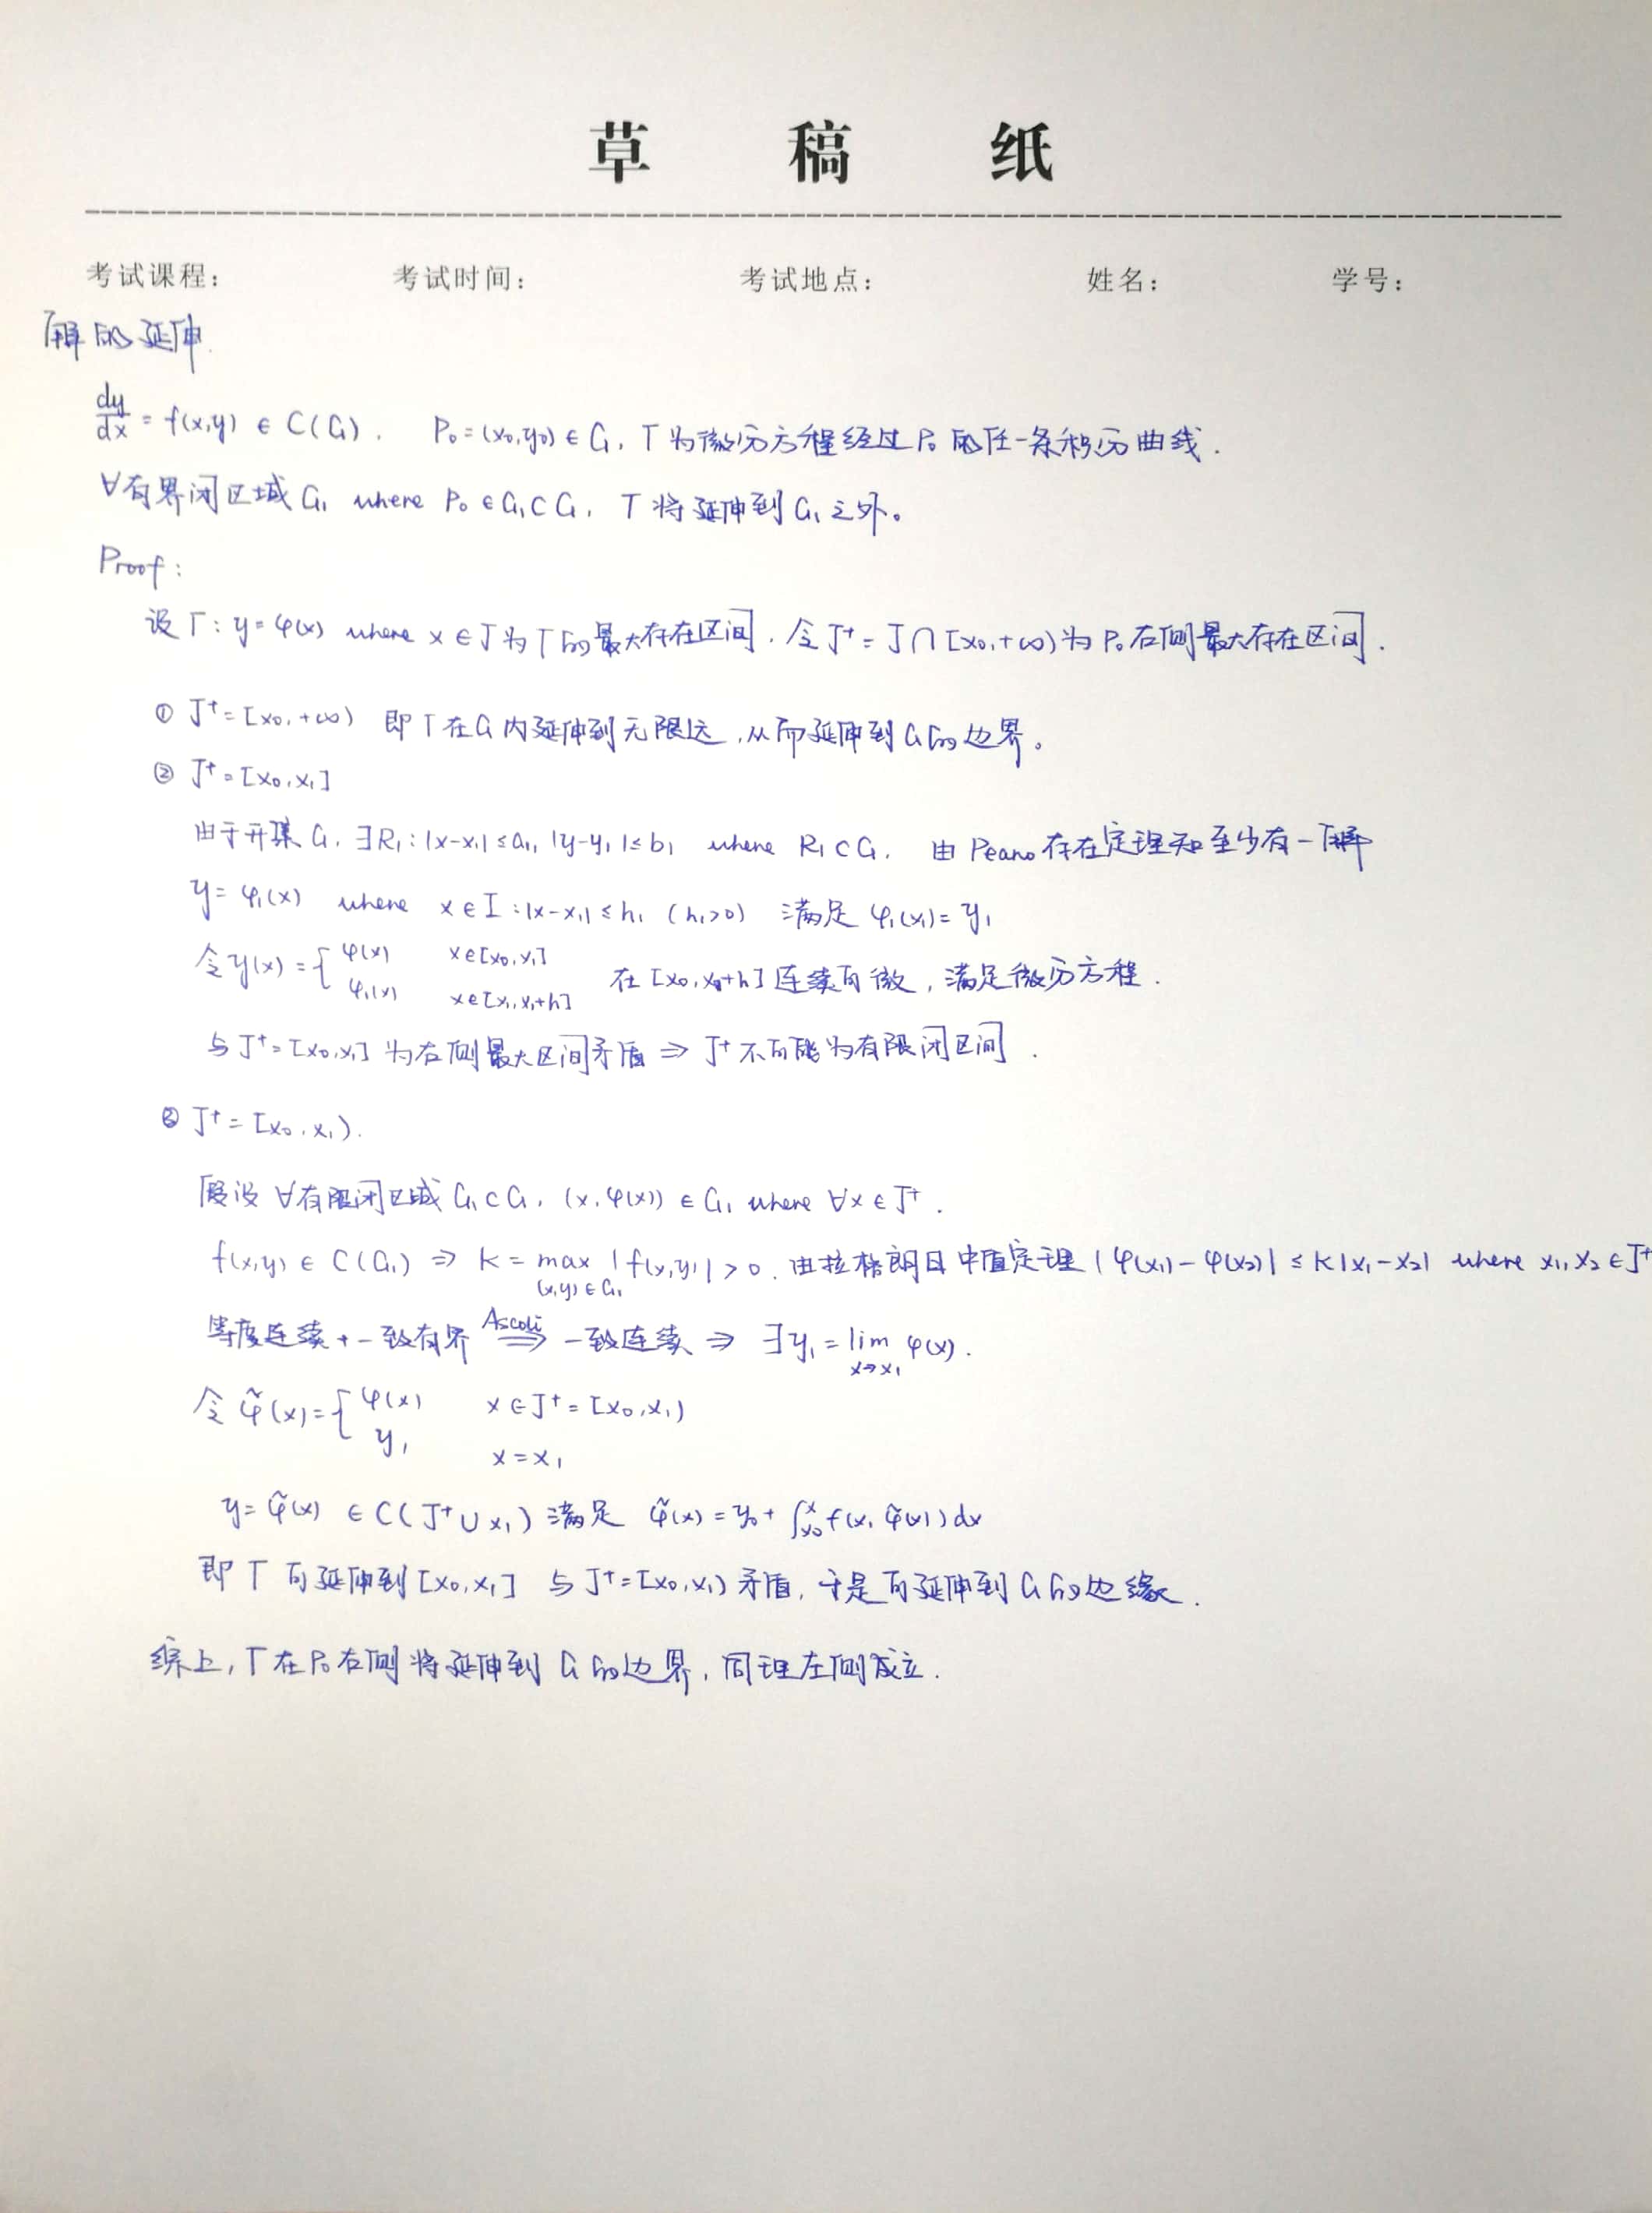 草 稿 纸
考试课程: 考试时间: 考试地点: 姓名: 学号:
解的延伸.
dy/dx = f(x,y) ∈ C(G). P₀=(x₀,y₀) ∈ G, Γ为微分方程经过P₀的任一条积分曲线.
∀有界闭区域 G₁ where P₀ ∈ G₁ ⊂ G, Γ将延伸到G₁之外。
Proof:
设Γ: y=φ(x) where x ∈ J为Γ的最大存在区间. 令J⁺ = J∩[x₀,+∞)为P₀右侧最大存在区间.
① J⁺=[x₀,+∞) 即Γ在G内延伸到无限远,从而延伸到G的边界。
② J⁺=[x₀,x₁]
由于开集G, ∃R₁: |x-x₁|≤a₁, |y-y₁|≤b₁ where R₁⊂G. 由Peano存在定理知至少有一解
y=φ₁(x) where x∈I:|x-x₁|≤h₁ (h₁>0) 满足 φ₁(x₁)=y₁
令y(x)={ φ(x) x∈[x₀,x₁]
φ₁(x) x∈[x₁,x₁+h] 在[x₀,x₁+h]连续可微,满足微分方程.
与J⁺=[x₀,x₁]为右侧最大区间矛盾 ⇒ J⁺不可能为有限闭区间.
③ J⁺=[x₀,x₁).
假设∀有限闭区域G₁⊂G, (x,φ(x))∈G₁ where ∀x∈J⁺.
f(x,y)∈C(G₁) ⇒ K = max_{(x,y)∈G₁} |f(x,y)|>0. 由拉格朗日中值定理 |φ(x₁)-φ(x₂)|≤K|x₁-x₂| where x₁,x₂∈J⁺
等度连续+一致有界 Ascoli⇒ 一致连续 ⇒ ∃y₁=lim_{x→x₁} φ(x).
令φ̃(x)={ φ(x) x∈J⁺=[x₀,x₁)
y₁ x=x₁
y=φ̃(x) ∈C(J⁺∪x₁) 满足 φ̃(x)=y₀+∫_{x₀}^{x} f(x,φ̃(x))dx
即Γ可延伸到[x₀,x₁] 与J⁺=[x₀,x₁)矛盾,于是可延伸到G的边缘.
综上,Γ在P₀右侧将延伸到G的边界,同理左侧成立.